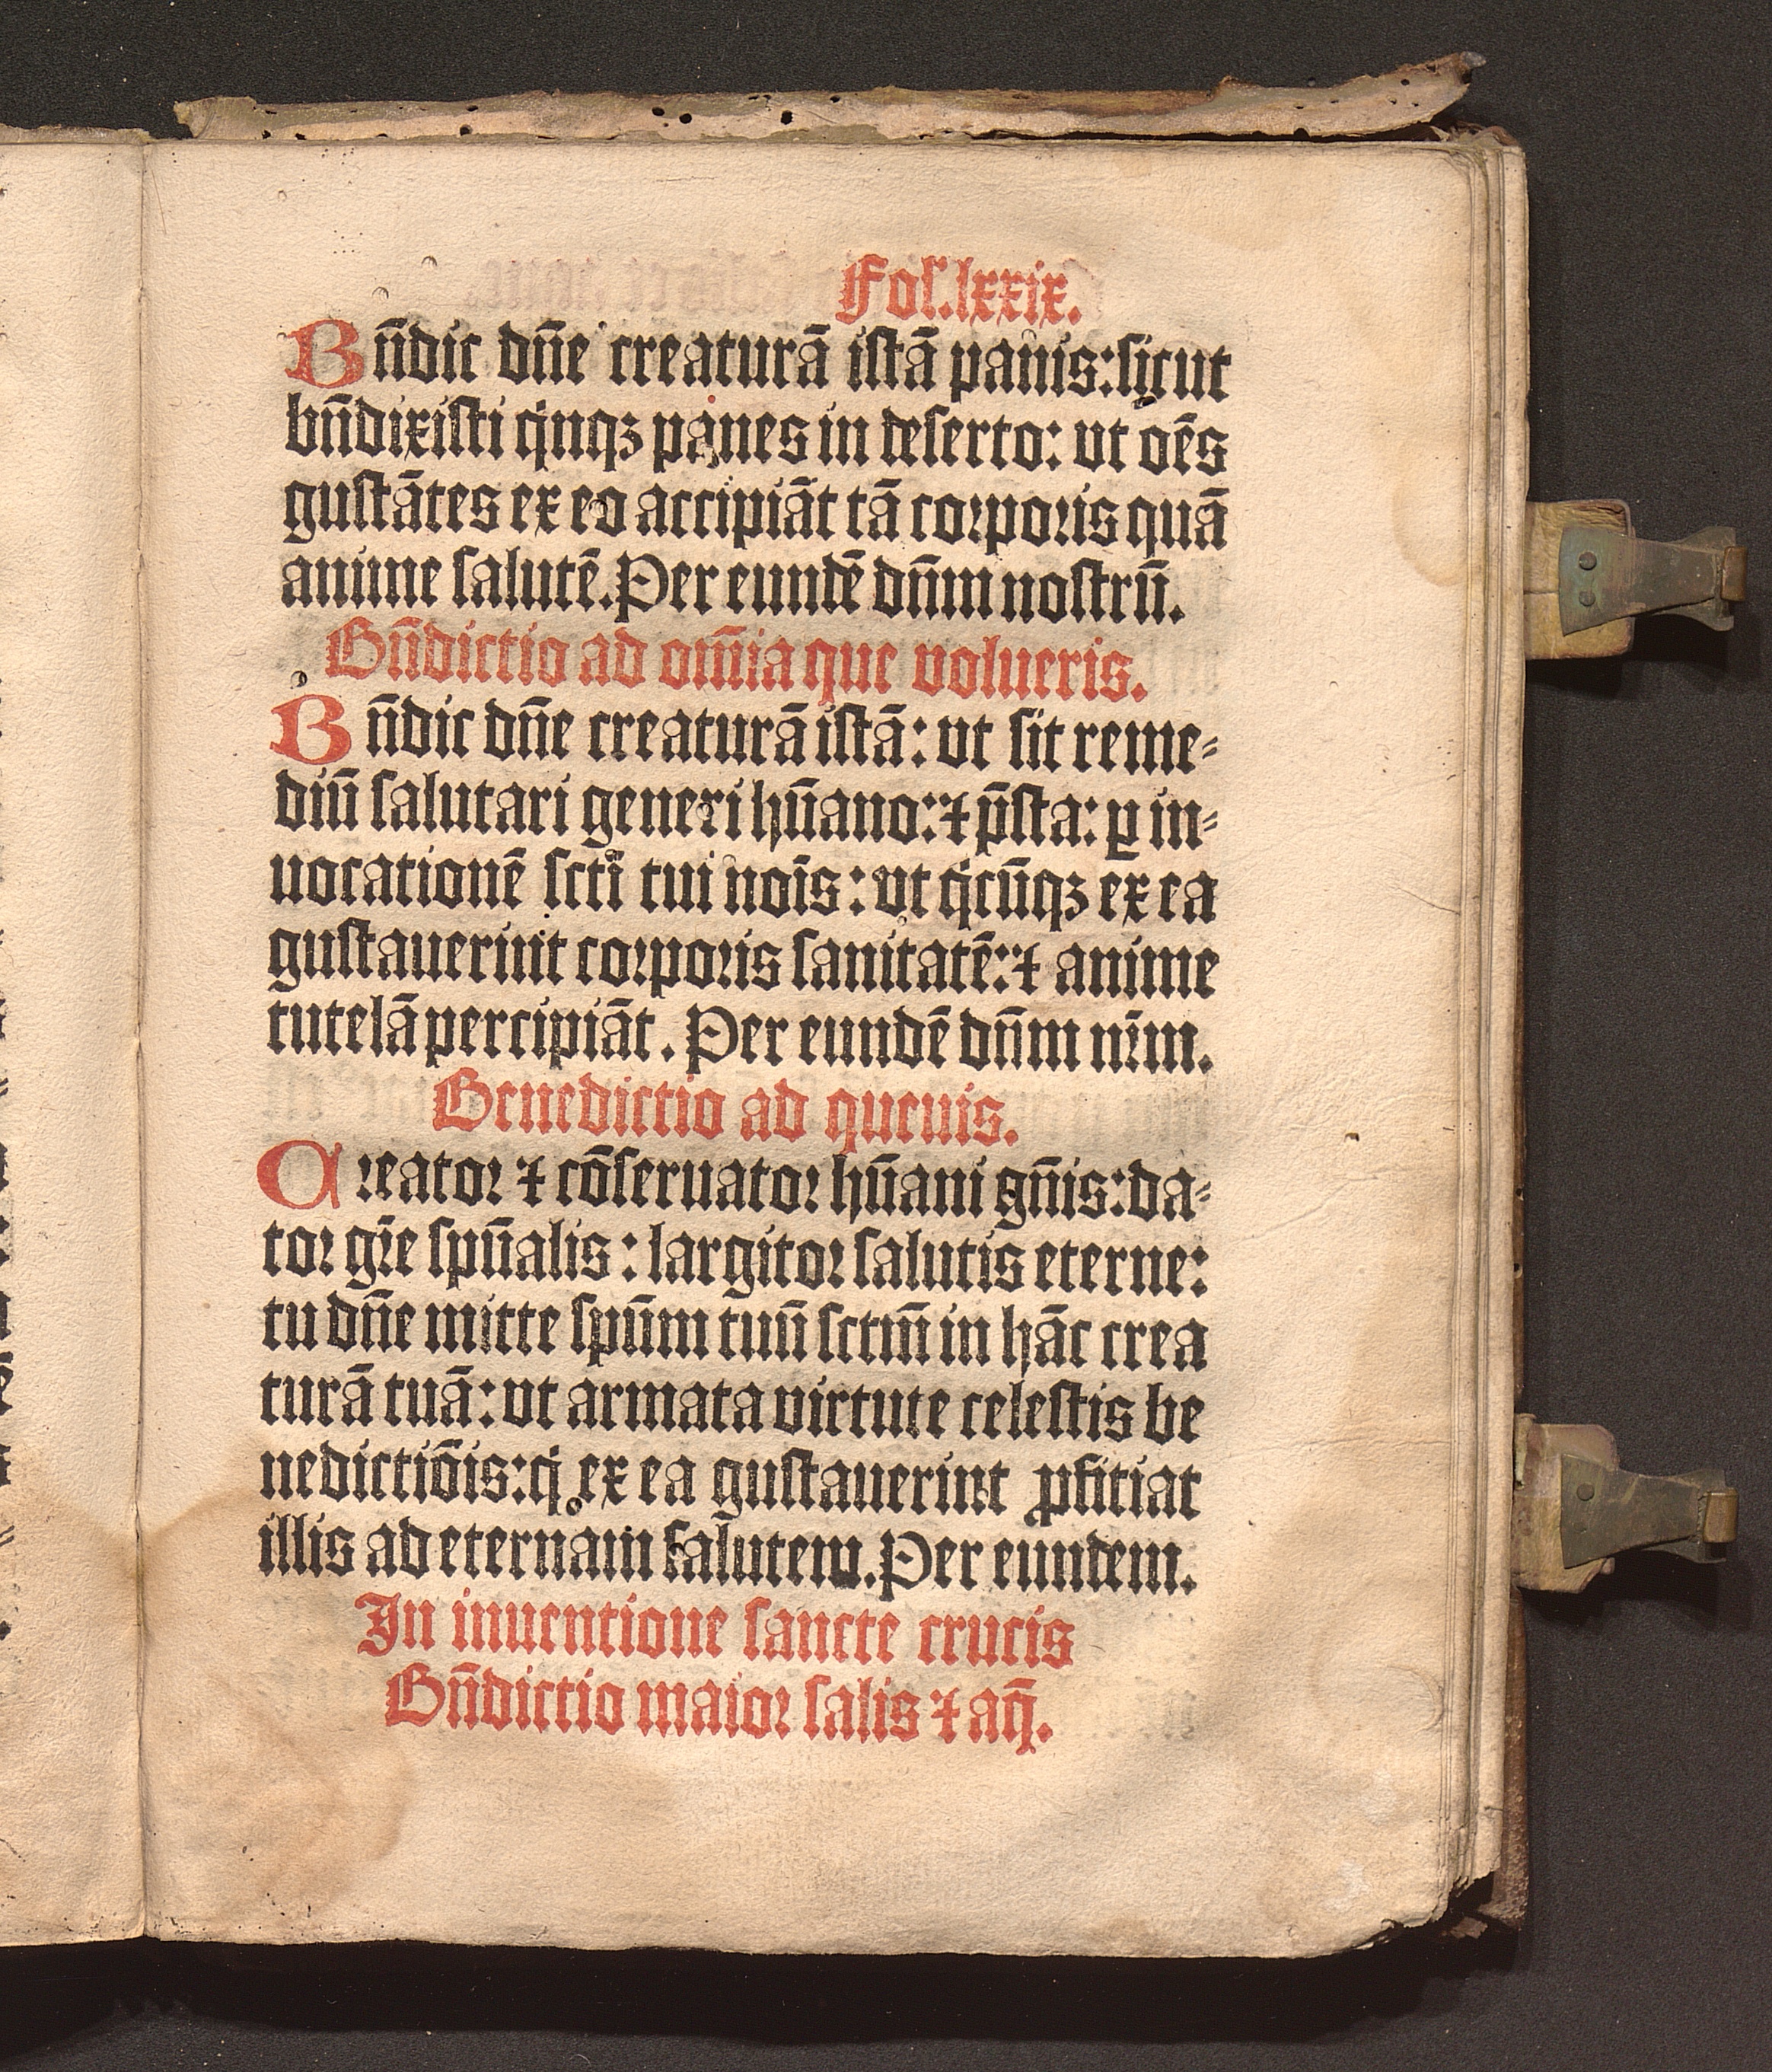 Fol.lxxix.
Bn̄dic dn̄e creaturā istā panis:sicut
bn̄dixisti qinqꝫ panes in deserto: vt oēs
gustātes ex eo accipiāt tā corporis quā
anime salutē.Per eundē dn̄m nostrū.
Bn̄dictio ad om̄ia que volueris.
Bn̄dic dn̄e creaturā istā: vt sit reme⸗
diū salutari generi hūano: ⁊ p̄sta: ꝑ in⸗
uocationē scti̅ tui noīs: vt qicūqꝫ ex ea
gustauerint corporis sanitatē: ⁊ anime
tutelā percipiāt. Per eundē dn̄m nr̄m.
Benedictio ad queuis.
Creator ⁊ cōseruator hūani gn̄is:da⸗
tor gr̄e spūalis: largitor salutis eterne:
tu dn̄e mitte spūm tuū sctm̄ in hāc crea
turā tuā: vt armata virtute celestis be
nedictiōis:qi ex ea gustauerint ꝓficiat
illis ad eternam salutem.Per eundem.
In inuentione sancte crucis
Bn̄dictio maior salis ⁊ aq̄.